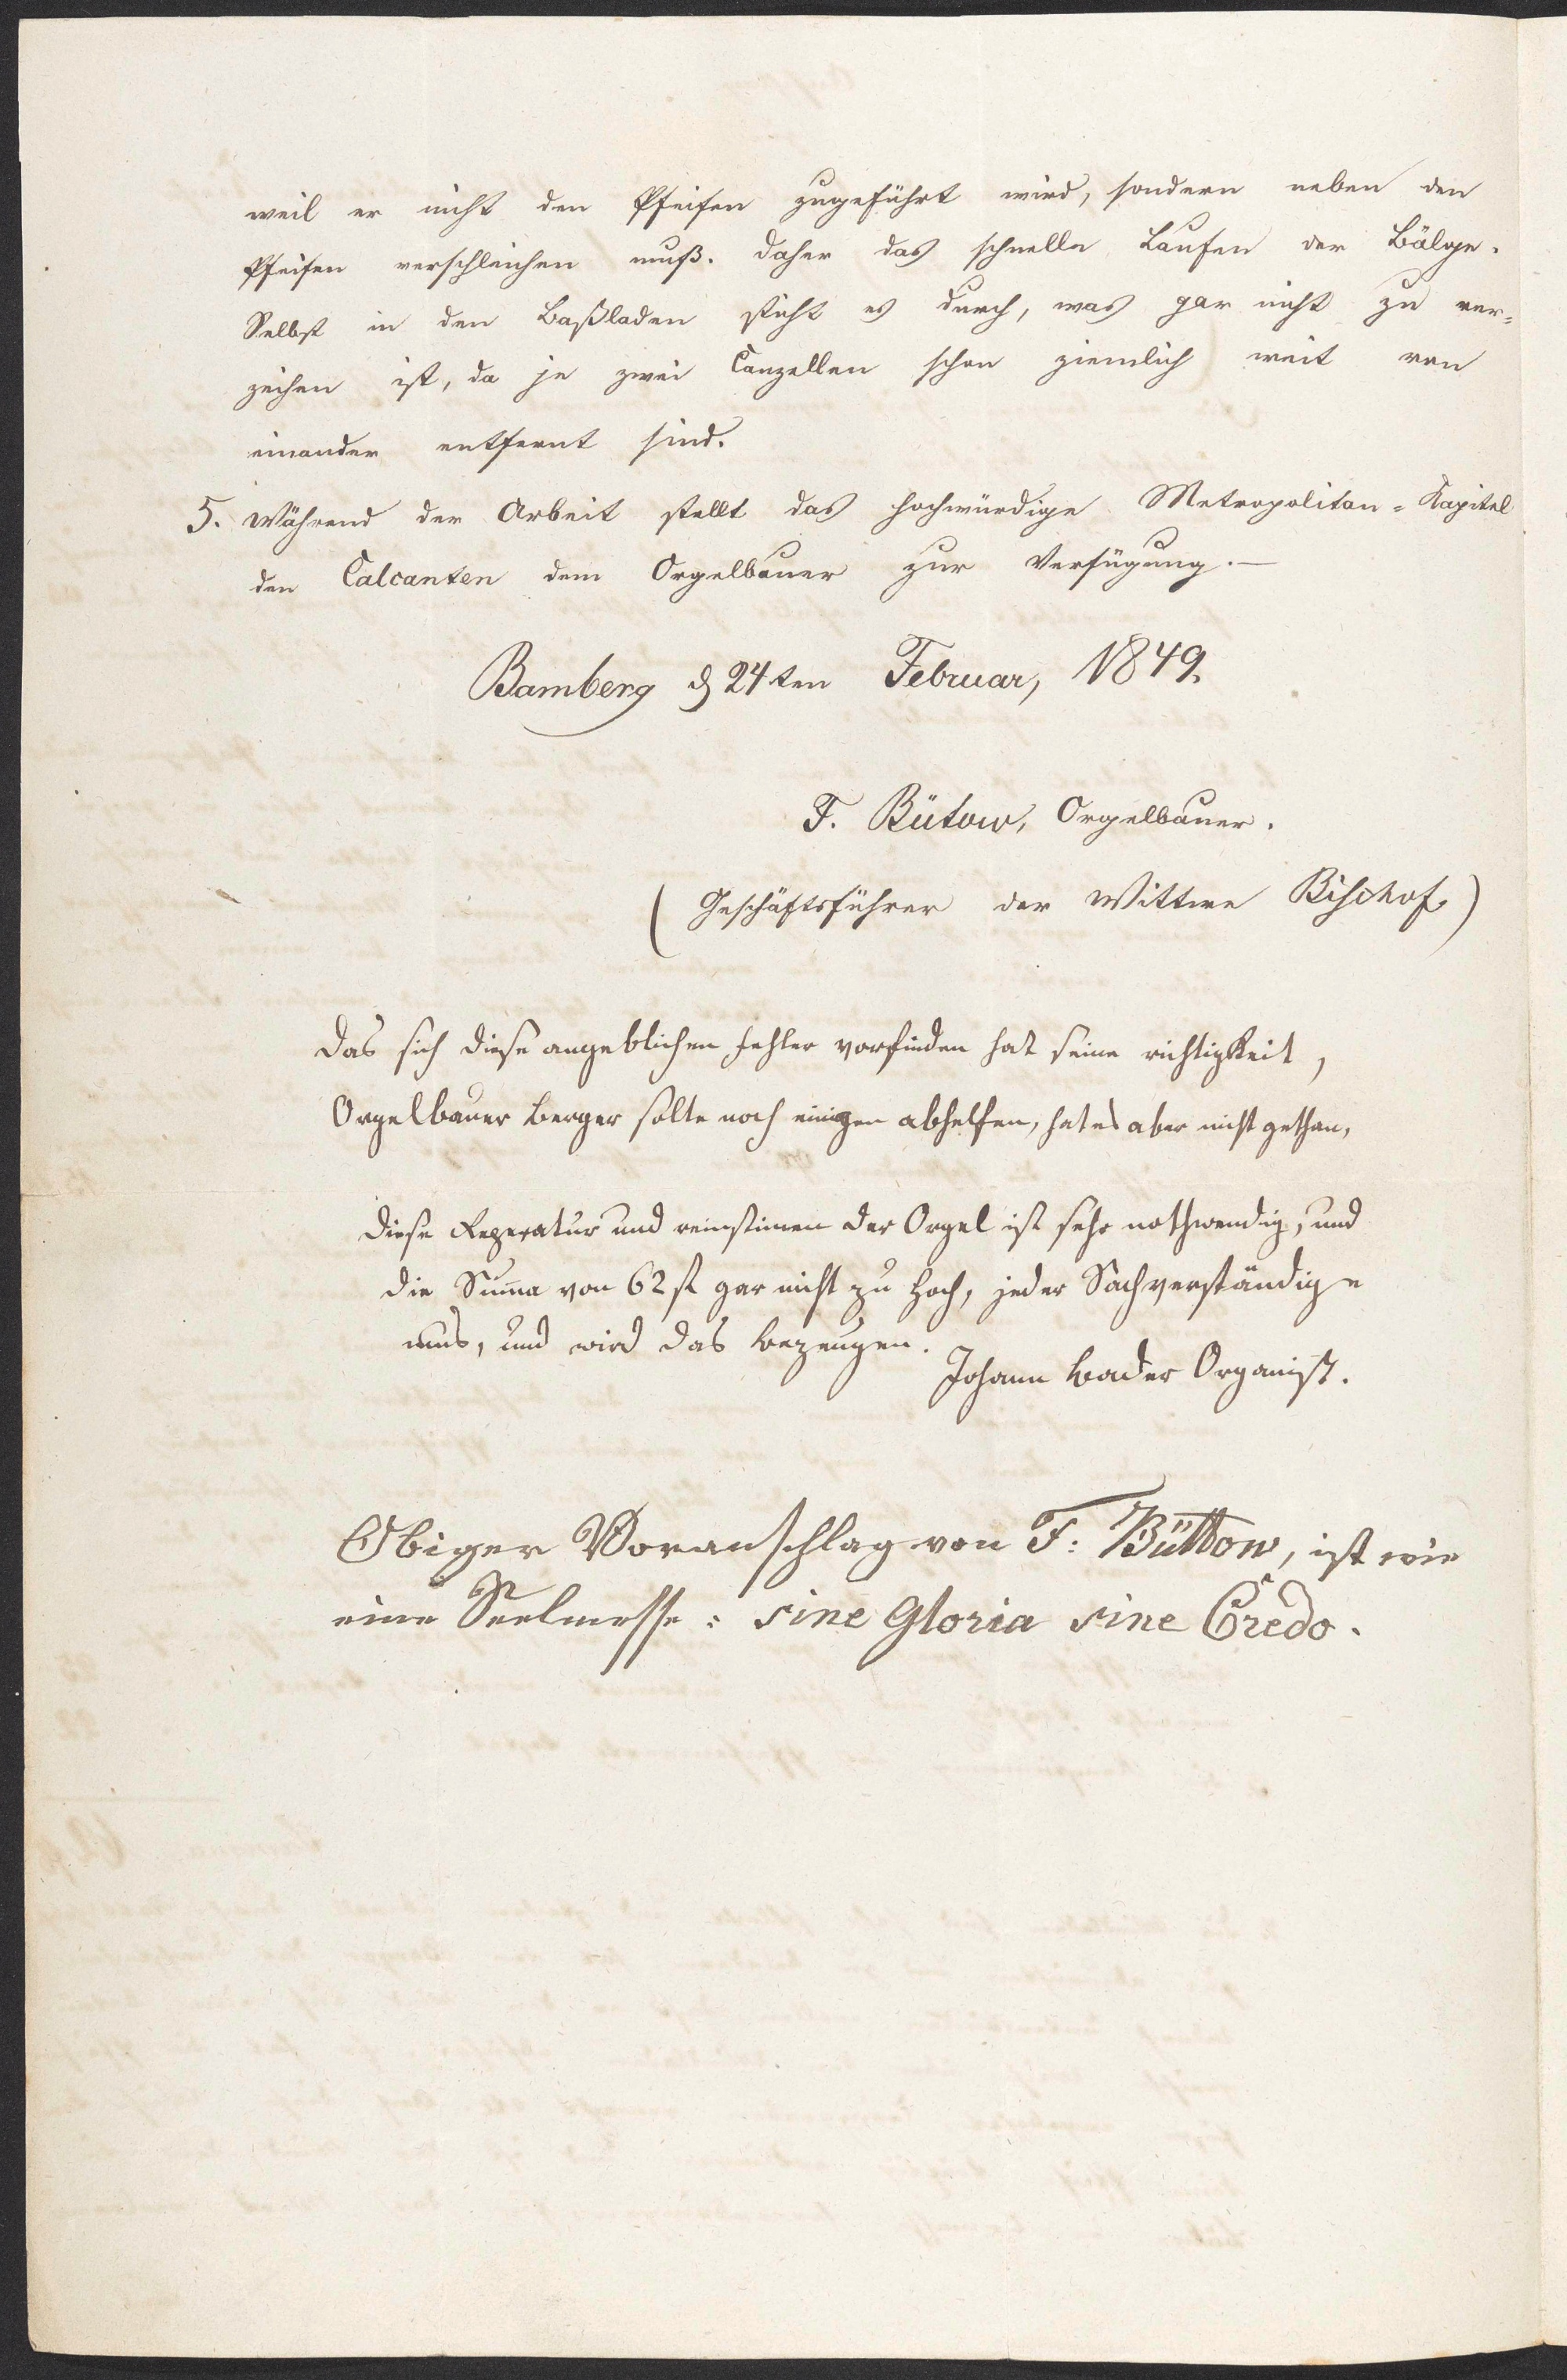 weil er nicht den Pfeifen zugeführt wird, sondern neben den
Pfeifen verschleichen muß. daher das schnelle Laufen der Bälge.
Selbst in den Baßladen sticht es durch, was gar nicht zu ver=
zeihen ist, da je zwei Canzellen schon ziemlich weit von
einander entfernt sind.
5. Während der Arbeit stellt das hochwürdige Metropolitan=Kapitel
den Calcanten dem Orgelbauer zur Verfügung.—
Bamberg d 24ten Februar, 1849.
F. Bütow, Orgelbauer.
(Geschäftsführer der Wittwe Bischof)
das sich diese angeblichen fehler vorfinden hat seine richtigkeit,
Orgelbauer Berger solte noch einigen abhelfen, hat es aber nicht gethan,
diese Reperatur und reinstimen der Orgel ist sehr nothwendig, und
die Suma von 62 fl gar nicht zu hoch, jeder Sachverständige
mus, und wird das bezeugen.
Johann Bader Organist.
Obiger Voranschlag von F: Büttow, ist wie
eine Seelmesse: sine Gloria sine Credo.